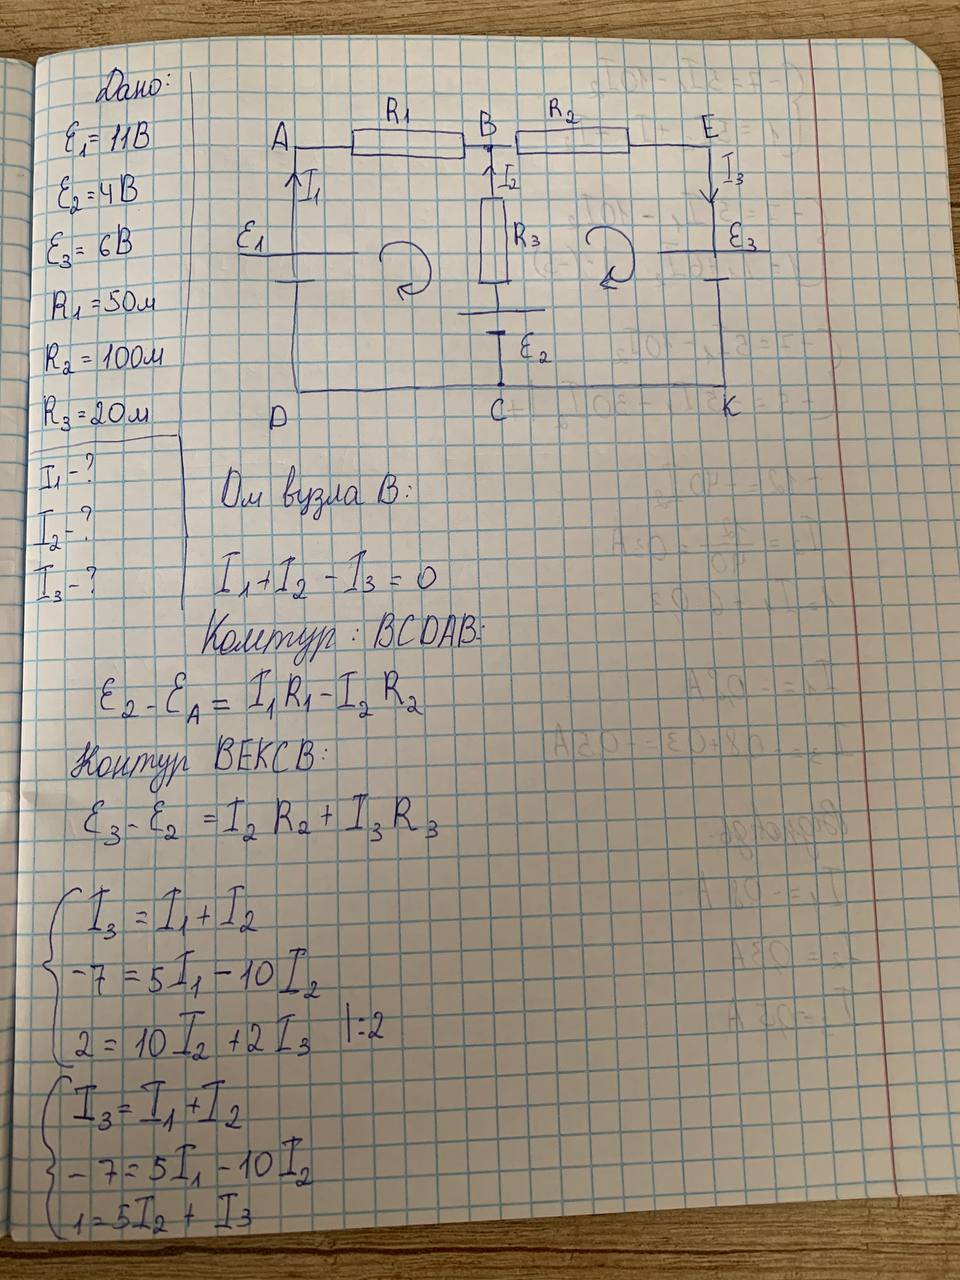 Дано:
Ɛ₁ = 11В
Ɛ₂ = 4В
Ɛ₃ = 6В
R₁ = 5Ом
R₂ = 10Ом
R₃ = 2Ом
I₁ - ?
I₂ - ?
I₃ - ?
A R₁ B R₂ E
I₁ I₂ I₃
Ɛ₁ R₃ Ɛ₃
Ɛ₂
D C K
Ом вузла В:
I₁ + I₂ - I₃ = 0
Контур: BCDAB:
Ɛ₂ - Ɛ_A = I₁R₁ - I₂R₂
Контур BEKCB:
Ɛ₃ - Ɛ₂ = I₂R₂ + I₃R₃
I₃ = I₁ + I₂
-7 = 5I₁ - 10I₂
2 = 10I₂ + 2I₃ |:2
I₃ = I₁ + I₂
-7 = 5I₁ - 10I₂
1 = 5I₂ + I₃